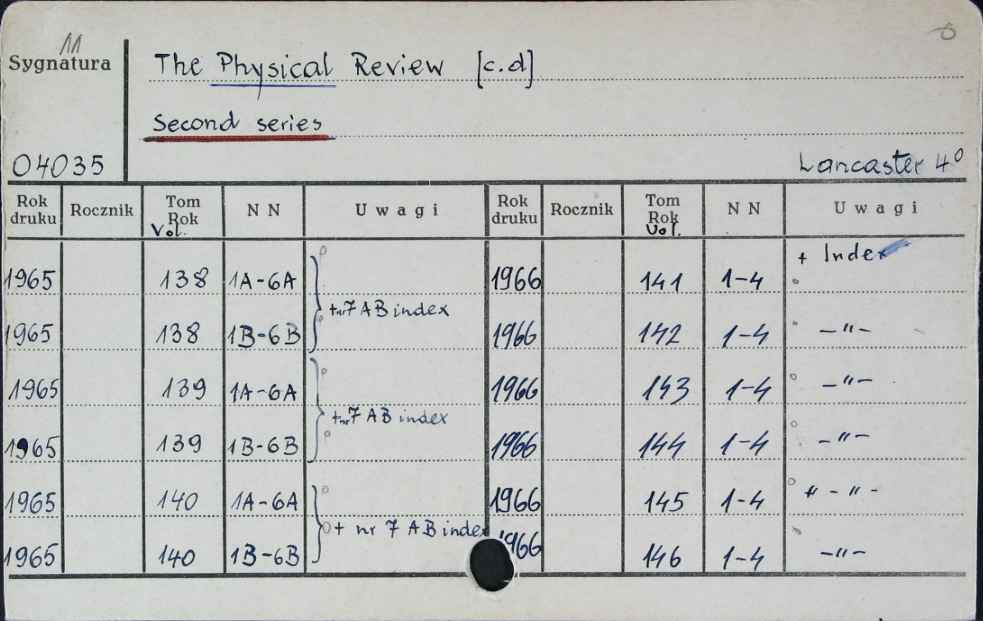 11
Sygnatura
The Physical Review [c.d]
Second series
04035
Lancaster 4°
Rok druku Rocznik Tom Rok Vol. N N Uwagi Rok druku Rocznik Tom Rok Vol. N N Uwagi
1965 138 1A-6A 1966 141 1-4 + Index
+nr 7 AB index
1965 138 1B-6B 1966 142 1-4 -"-
1965 139 1A-6A 1966 143 1-4 -"-
+nr 7 AB index
1965 139 1B-6B 1966 144 1-4 -"-
1965 140 1A-6A 1966 145 1-4 -"-
+ nr 7 AB index
1965 140 1B-6B 1966 146 1-4 -"-